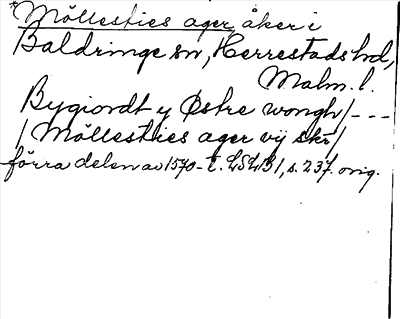 *Möllesties ager, åker i
Baldringe sn, Herrestads hd,
Malm. l.
Bygiordt y Østre wongh/---
/Möllesties ager vij skr/
förra delen av 1570-t. LSLB1, s. 237. orig.